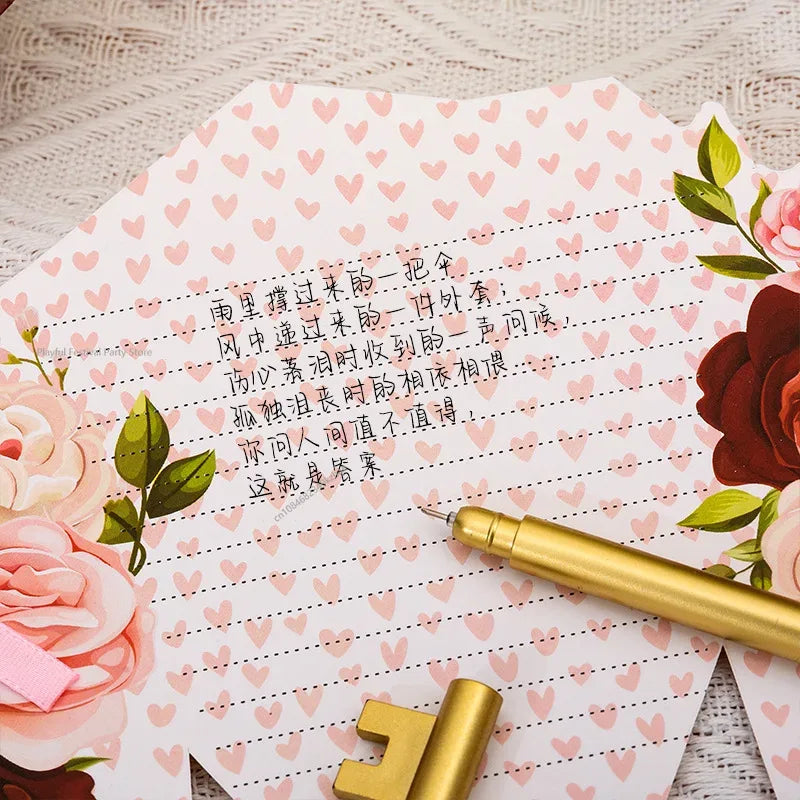 雨里撑过来的一把伞
风中递过来的一件外套，
伤心落泪时收到的一声问候，
孤独沮丧时的相依相偎
你问人间值不值得，
这就是答案
Playful Festival Party Store